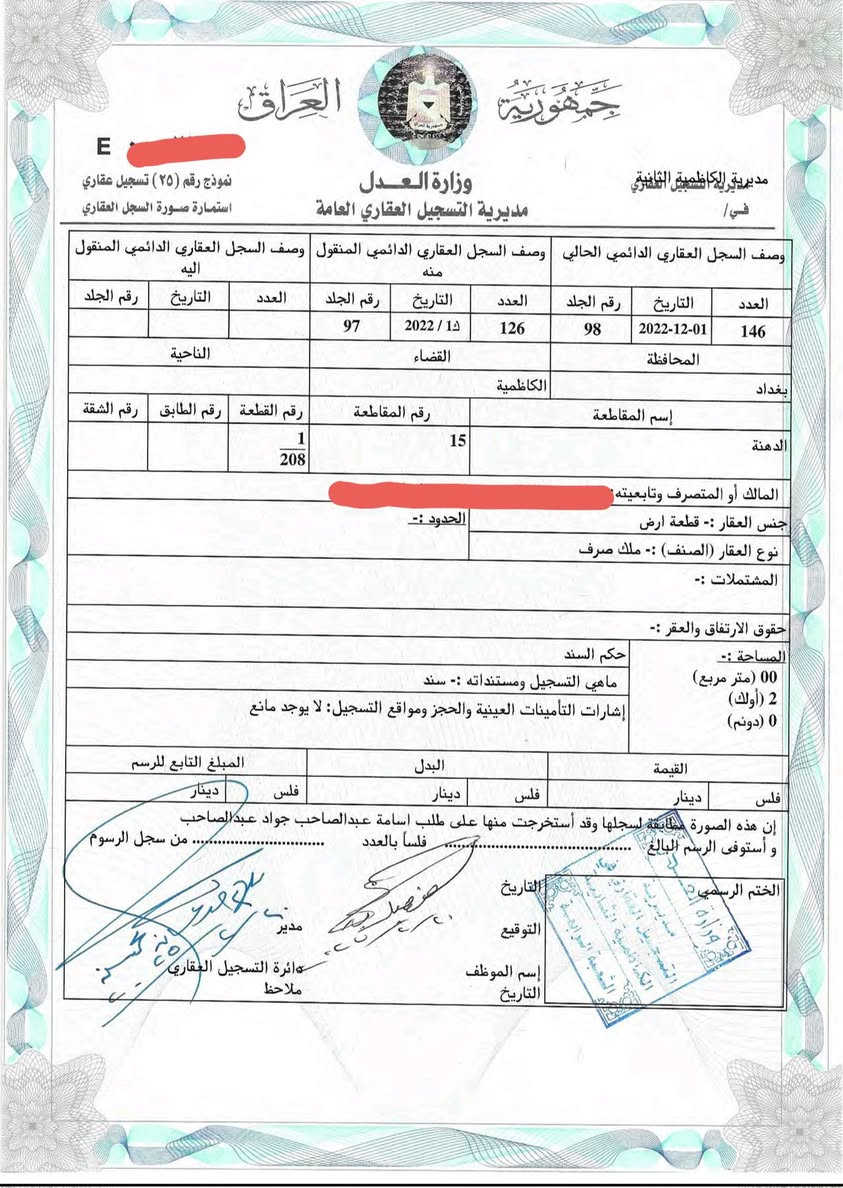 جمهورية العراق
E
وزارة العدل
مديرية التسجيل العقاري العامة
مديرية الكاظمية الثانية
مديرية التسجيل العقاري
في/
نموذج رقم (٢٥) تسجيل عقاري
استمارة صورة السجل العقاري
وصف السجل العقاري الدائمي الحالي
وصف السجل العقاري الدائمي المنقول منه
وصف السجل العقاري الدائمي المنقول اليه
العدد التاريخ رقم الجلد العدد التاريخ رقم الجلد العدد التاريخ رقم الجلد
146 2022-12-01 98 126 ك1 / 2022 97
المحافظة القضاء الناحية
بغداد الكاظمية
إسم المقاطعة رقم المقاطعة رقم القطعة رقم الطابق رقم الشقة
الدهنة 15 1
208
المالك أو المتصرف وتابعيته:
جنس العقار :- قطعة ارض
الحدود :-
نوع العقار (الصنف) :- ملك صرف
المشتملات :-
حقوق الارتفاق والعقر :-
المساحة :-
00 (متر مربع)
2 (أولك)
0 (دونم)
حكم السند
ماهي التسجيل ومستنداته :- سند
إشارات التأمينات العينية والحجز ومواقع التسجيل: لا يوجد مانع
القيمة البدل المبلغ التابع للرسم
فلس دينار فلس دينار فلس دينار
إن هذه الصورة مطابقة لسجلها وقد أستخرجت منها على طلب اسامة عبدالصاحب جواد عبدالصاحب
و أستوفى الرسم البالغ .............................. فلسا بالعدد .............................. من سجل الرسوم
الختم الرسمي
التاريخ
التوقيع
إسم الموظف
التاريخ
مدير
دائرة التسجيل العقاري
ملاحظ
وزارة العدل